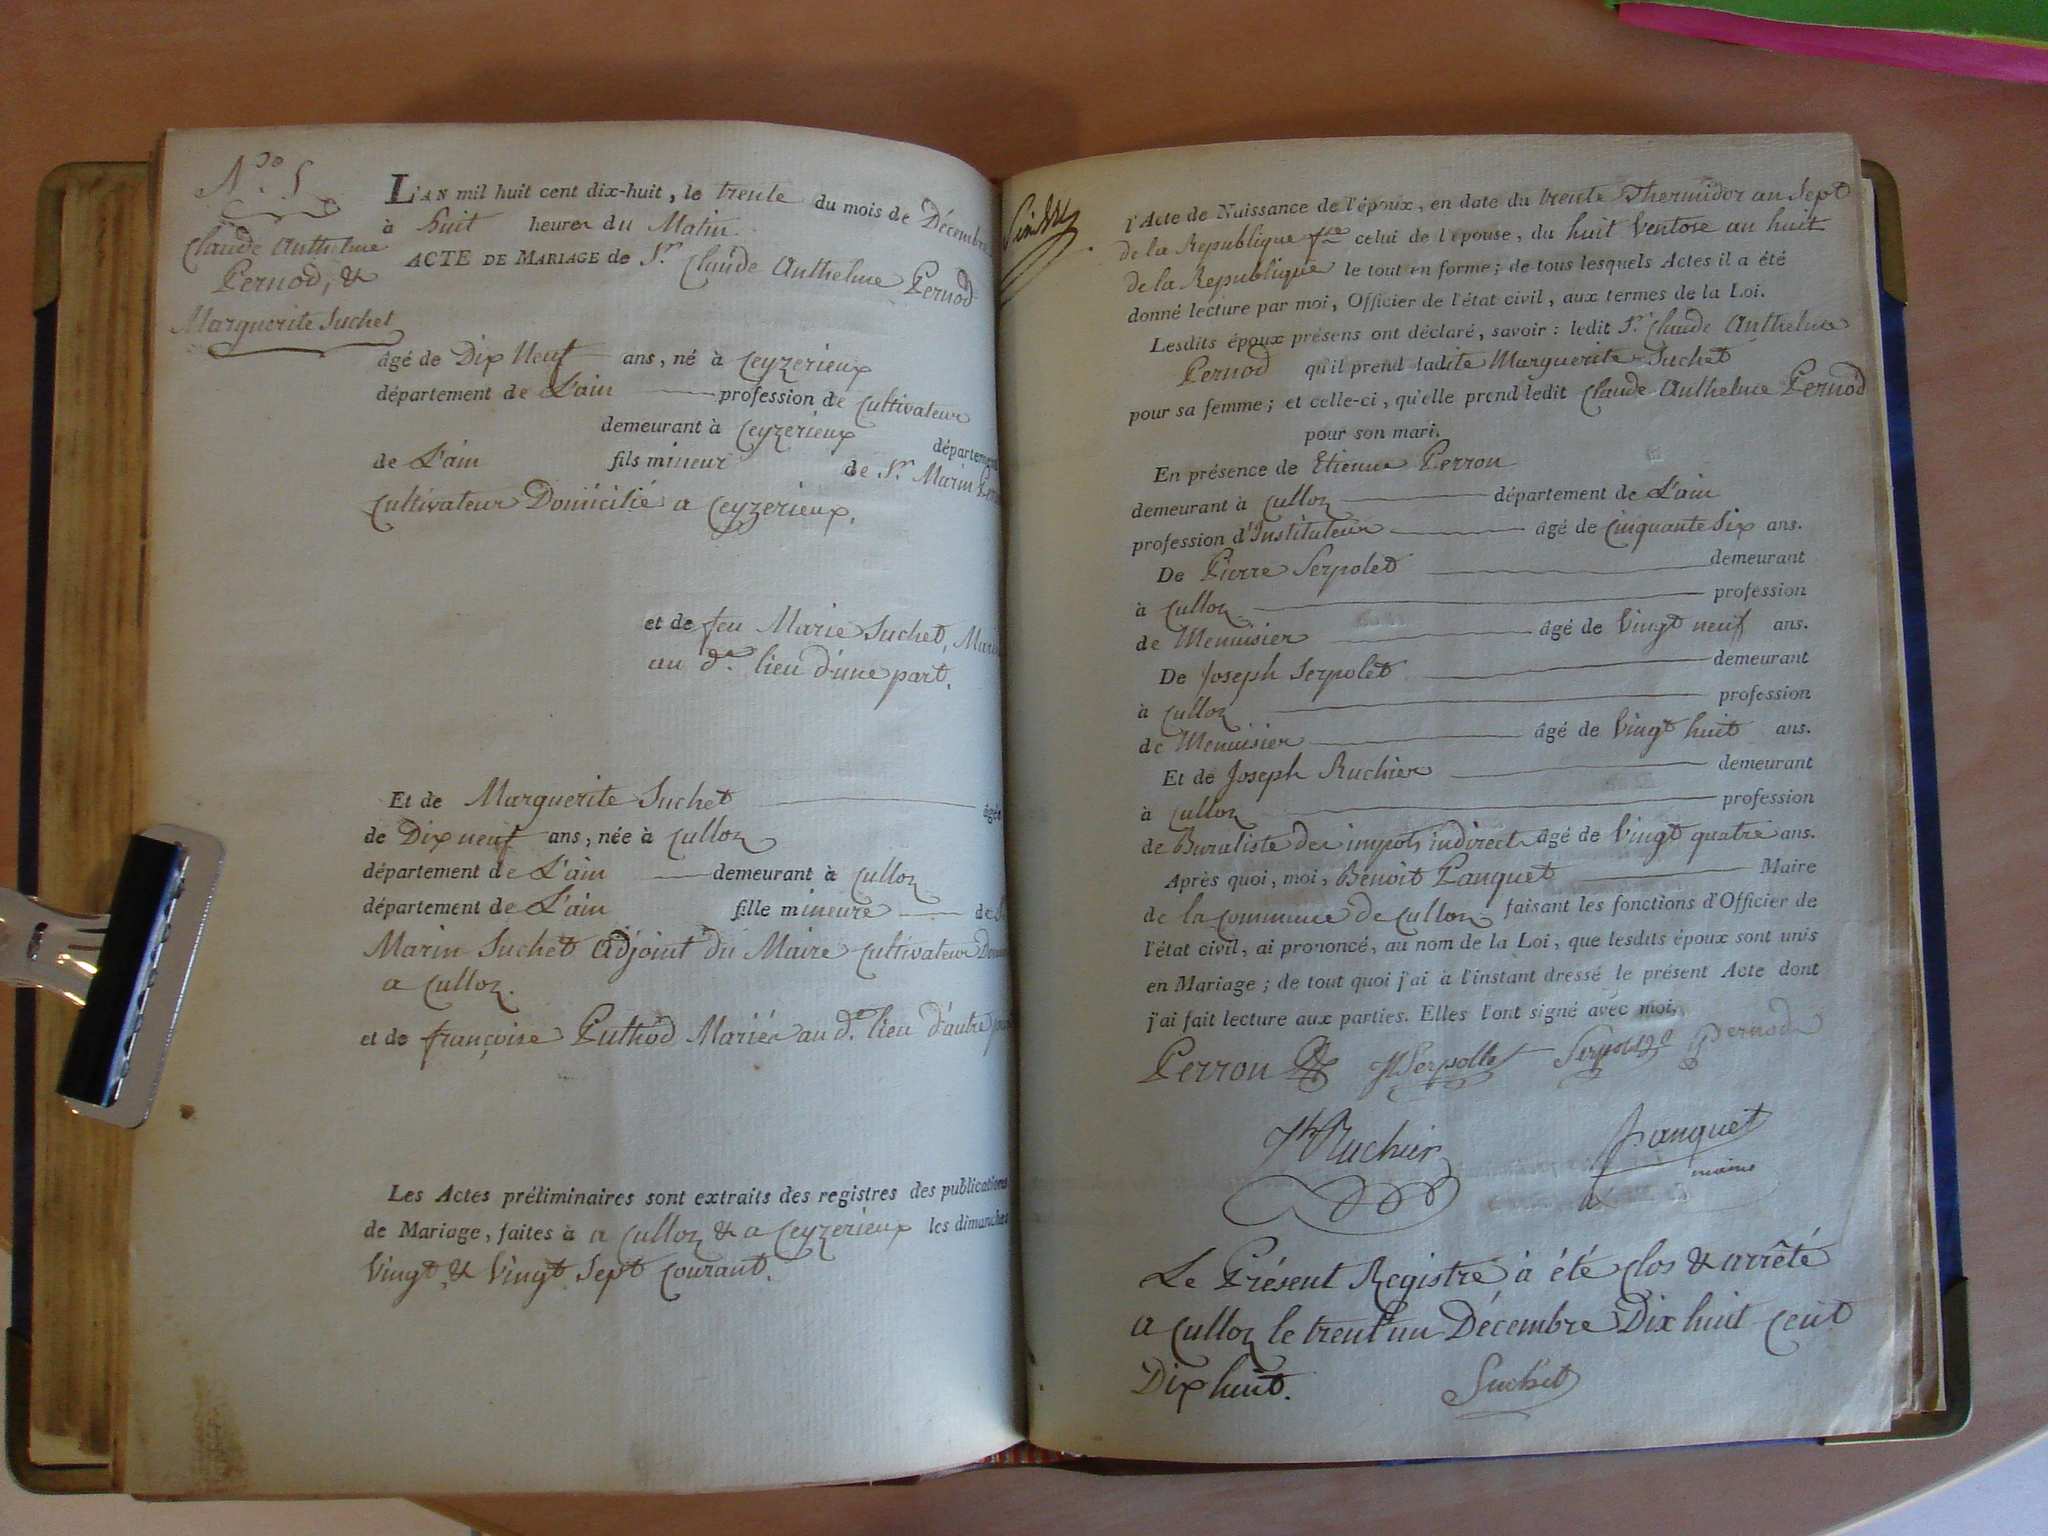 N.o 5
Claude Anthelme
Pernod, &
Marguerite Suchet
L'AN mil huit cent dix-huit, le trente du mois de Décembre
à huit heures du Matin.
ACTE DE MARIAGE de Sr. Claude Anthelme Pernod
âgé de Dix Neuf ans, né à Ceyzerieux
département de L'ain profession de Cultivateur
demeurant à Ceyzerieux département
de L'ain fils mineur de Sr. Marin
Cultivateur Domicilié a Ceyzerieux.
et de feu Marie Suchet,
au dt. lieu d'une part.
Et de Marguerite Suchet âgée
de Dix neuf ans, née à Culloz
département de L'ain demeurant à Culloz
département de L'ain fille mineure de
Marin Suchet adjoint du Maire Cultivateur
a Culloz.
et de françoise Puthod Mariés au dt. lieu d'autre
Les Actes préliminaires sont extraits des registres des publications
de Mariage, faites à a Culloz & a Ceyzerieux les dimanches
Vingt & Vingt Sept Courant.
l'Acte de Naissance de l'époux, en date du trente Thermidor an Sept
de la Republique celui de l'épouse, du huit Ventose an huit
de la Republique le tout en forme; de tous lesquels Actes il a été
donné lecture par moi, Officier de l'état civil, aux termes de la Loi.
Lesdits époux présens ont déclaré, savoir: ledit Sr. Claude Anthelme
Pernod qu'il prend ladite Marguerite Suchet
pour sa femme; et celle-ci, qu'elle prend ledit Claude Anthelme Pernod
pour son mari.
En présence de Etienne Perron
demeurant à Culloz département de L'ain
profession d'Instituteur âgé de Cinquante Six ans.
De Pierre Serpolet demeurant
à Culloz profession
de Menuisier âgé de Vingt neuf ans.
De Joseph Serpolet demeurant
à Culloz profession
de Menuisier âgé de Vingt huit ans.
Et de Joseph Ruchier demeurant
à Culloz profession
de Buraliste des impots indirects âgé de Vingt quatre ans.
Après quoi, moi, Benoit Panquet Maire
de la commune de Culloz faisant les fonctions d'Officier de
l'état civil, ai prononcé, au nom de la Loi, que lesdits époux sont unis
en Mariage; de tout quoi j'ai à l'instant dressé le présent Acte dont
j'ai fait lecture aux parties. Elles l'ont signé avec moi.
Perron Serpollet Pernod
Jh Ruchier Panquet
maire
Le Présent Registre à été clos & arrêté
a Culloz le trent'un Décembre Dix huit Cent
Dix huit. Suchet